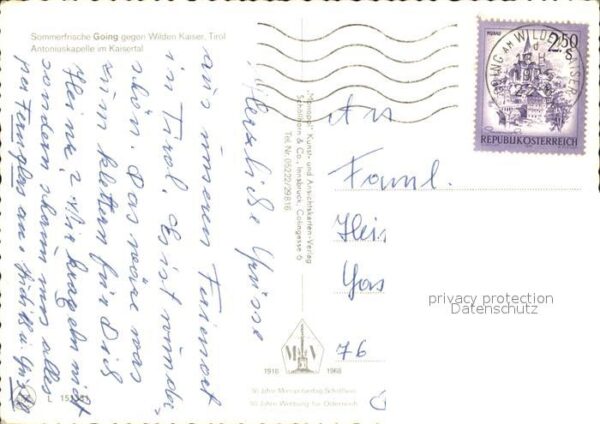 Sommerfrische Going gegen Wilden Kaiser, Tirol
Antoniuskapelle im Kaisertal
Herzliche Grüsse
aus unserem Ferienort
in Tirol, Es ist wunder-
schön. Das wäre was
zum klettern für Dich
Heinz? Wir kraxeln nicht
sondern schauen uns alles
per Fernglas an.
"Monopol" Kunst- und Ansichtskarten-Verlag
Schöllhorn & Co., Innsbruck, Colingasse 6
Tel. Nr. 05222/29816
M V
1918
1968
50 Jahre Werbung für Österreich
MURAU
2.50
S
REPUBLIK ÖSTERREICH
GOING AM WILDEN KAISER
An
Faml.
Heis
Gas
76
privacy protection
Datenschutz